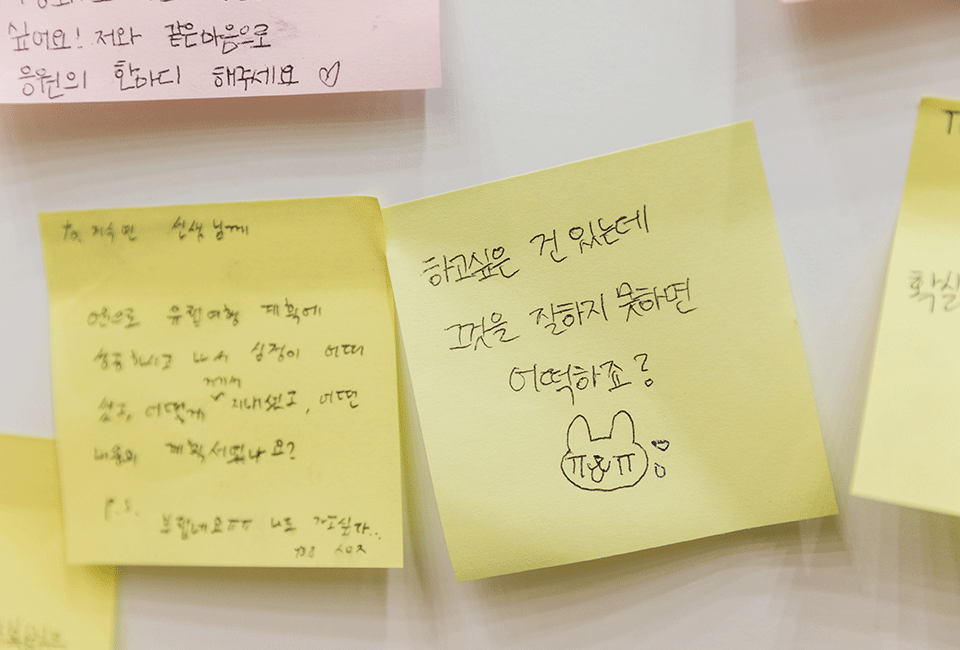 싶어요! 저와 같은마음으로
응원의 한마디 해주세요 ♡
To. 선생님께
유럽여행 계획에
성공하시고 나서 심정이 어떠
셨고, 어떻게 거기서 지내셨고, 어떤
내용의 계획 세웠나요?
P.S.
부럽네요ㅠㅠ 나도 가고싶다..
하고싶은 건 있는데
그것을 잘하지 못하면
어떡하죠?
ㅠㅅㅠ
확실